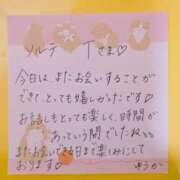 ソルテ Tさま♡
今日は、またお会いすることが
できて、とっても嬉しかったです♡
お話しもとっても楽しく、時間が
あっという間でしたね♡♡
またお会いできる日まで楽しみにして
おります♡
ゆうか